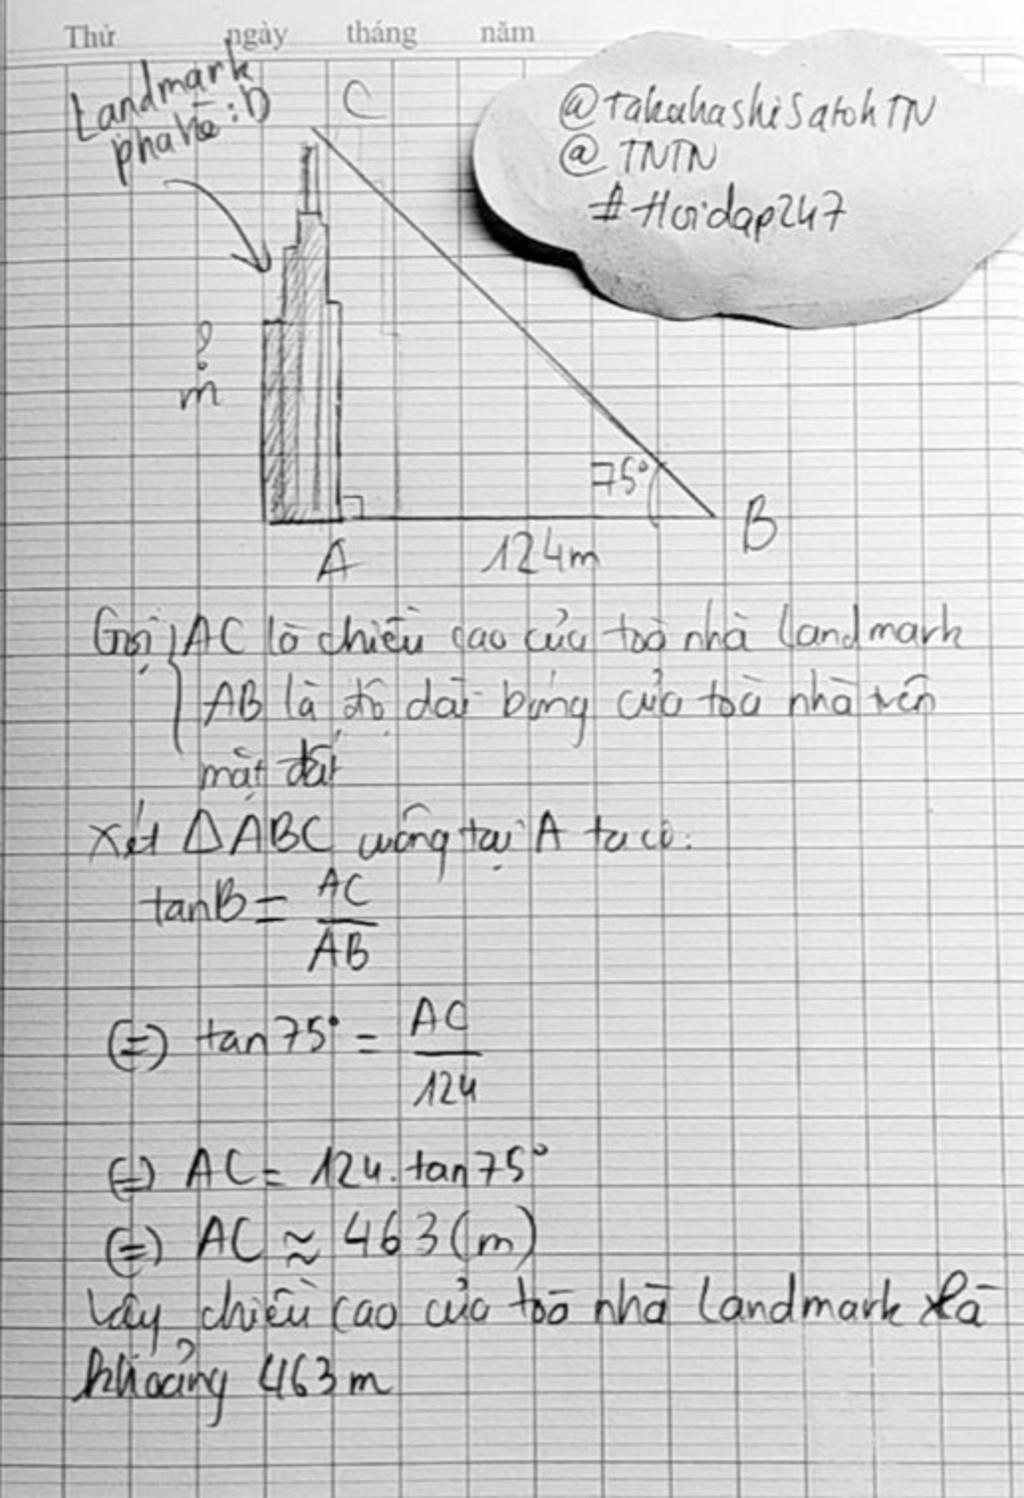 Thứ ngày tháng năm
Landmark
pha kè :D
C
@TakahashiSatohTN
@TNTN
#Hoidap247
?
m
75°
A
124m
B
Gọi { AC là chiều cao của toà nhà Landmark
AB là độ dài bóng của toà nhà trên
mặt đất
Xét ΔABC vuông tại A ta có:
tanB = AC
AB
(=) tan75° = AC
124
(=) AC = 124.tan75°
(=) AC ≈ 463(m)
Vậy chiều cao của toà nhà Landmark là
khoảng 463m